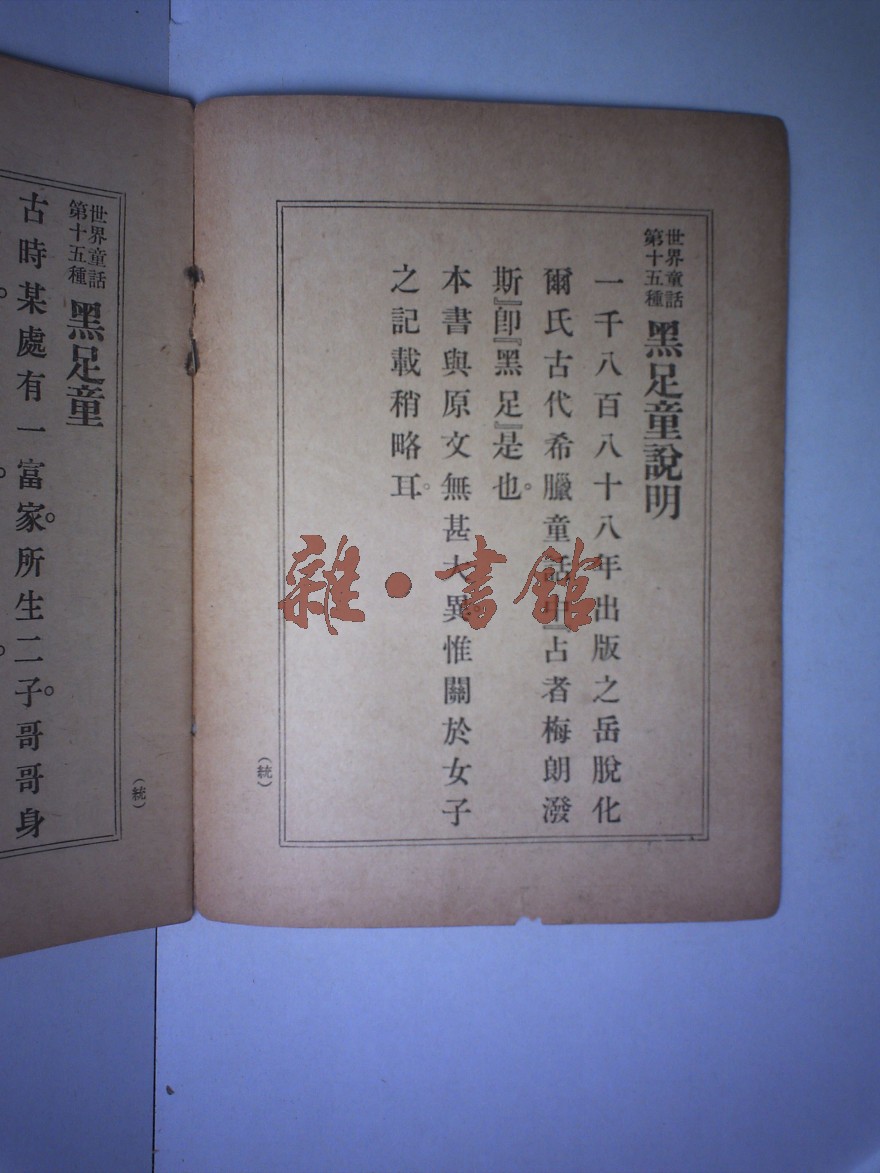 世界童話
第十五種
黑足童說明
一千八百八十八年出版之岳脫化
爾氏古代希臘童話中『占者梅朗潑
斯』卽『黑足』是也。
本書與原文無甚大異惟關於女子
之記載稍略耳。
(統)
世界童話
第十五種
黑足童
古時某處有一富家。所生二子。哥哥身
(統)
雜·書館